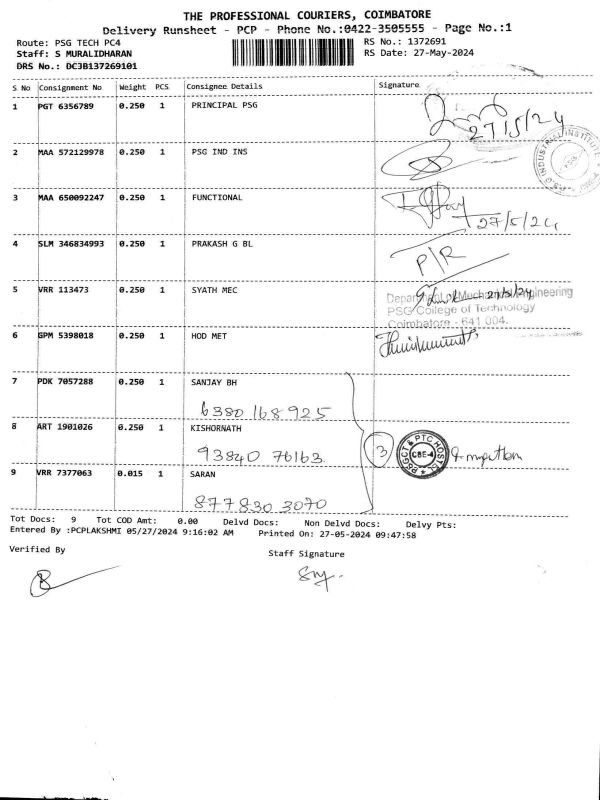 THE PROFESSIONAL COURIERS, COIMBATORE
Delivery Runsheet - PCP - Phone No.:0422-3505555 - Page No.:1
Route: PSG TECH PC4
RS No.: 1372691
Staff: S MURALIDHARAN
RS Date: 27-May-2024
DRS No.: DC3B137269101
S No Consignment No Weight PCS Consignee Details Signature
1 PGT 6356789 0.250 1 PRINCIPAL PSG
27/5/24
2 MAA 572129978 0.250 1 PSG IND INS
3 MAA 650092247 0.250 1 FUNCTIONAL
27/5/24
4 SLM 346834993 0.250 1 PRAKASH G BL
P/R
5 VRR 113473 0.250 1 SYATH MEC
Department of Mechanical Engineering
PSG College of Technology
Coimbatore - 641 004.
6 GPM 5398018 0.250 1 HOD MET
7 PDK 7057288 0.250 1 SANJAY BH
6380 168925
8 ART 1901026 0.250 1 KISHORNATH
93840 76163
3
PSGCT & PTC HOSTEL
CBE-4
9 VRR 7377063 0.015 1 SARAN
877830 3070
Tot Docs: 9 Tot COD Amt: 0.00 Delvd Docs: Non Delvd Docs: Delvy Pts:
Entered By :PCPLAKSHMI 05/27/2024 9:16:02 AM Printed On: 27-05-2024 09:47:58
Verified By
Staff Signature